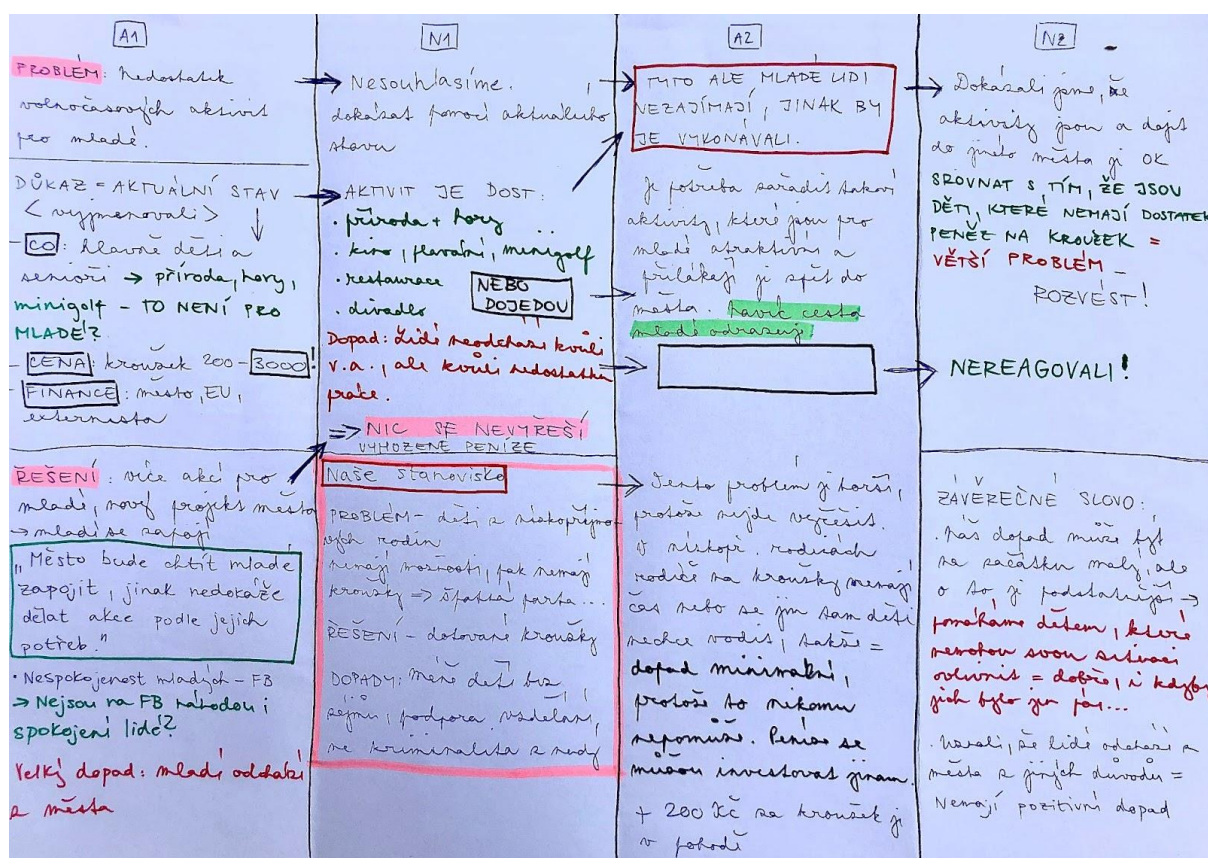 A1
PROBLÉM: Nedostatek
volnočasových aktivit
pro mladé.
DŮKAZ = AKTUÁLNÍ STAV
< vyjmenovali >
- CO: hlavně děti a
senioři → příroda, hory,
minigolf - TO NENÍ PRO
MLADÉ?
- CENA: kroužek 200 - 3000!
- FINANCE: město, EU,
externista
ŘEŠENÍ: více akcí pro
mladé, nový projekt města
→ mladí se zapojí
„Město bude chtít mladé
zapojit, jinak nedokáže
dělat akce podle jejich
potřeb."
• Nespokojenost mladých - FB
→ Nejsou na FB náhodou i
spokojení lidé?
Velký dopad: mladí odchází
z města
N1
Nesouhlasíme.
dokázat pomocí aktuálního
stavu
AKTIVIT JE DOST:
• příroda + hory
• kino, plavání, minigolf
• restaurace
• divadlo
NEBO
DOJEDOU
Dopad: Lidé neodchází kvůli
v.a., ale kvůli nedostatku
práce.
⇒ NIC SE NEVYŘEŠÍ
VYHOZENÉ PENÍZE
Naše stanovisko
PROBLÉM - děti z nízkopříjmo-
vých rodin
nemají možnosti, pak nemají
kroužky ⇒ špatná parta...
ŘEŠENÍ - dotované kroužky
DOPADY: méně dětí bez
zájmu, podpora vzdělání,
ne kriminalita z nudy
A2
TYTO ALE MLADÉ LIDI
NEZAJÍMAJÍ, JINAK BY
JE VYKONÁVALI.
Je potřeba zařadit takové
aktivity, které jsou pro
mladé atraktivní a
přilákají je zpět do
města. Navíc cesta
mladé odrazuje.
Tento problém je horší,
protože nejde vyřešit.
V nízkopř. rodinách
rodiče na kroužky nemají
čas nebo se jim tam děti
nechce vodit, takže =
dopad minimální,
protože to nikomu
nepomůže. Peníze se
můžou investovat jinam.
+ 200 Kč za kroužek je
v pohodě
N2
Dokázali jsme, že
aktivity jsou a dojít
do jiného města je OK
SROVNAT S TÍM, ŽE JSOU
DĚTI, KTERÉ NEMAJÍ DOSTATEK
PENĚZ NA KROUŽEK =
VĚTŠÍ PROBLÉM -
ROZVÉST!
NEREAGOVALI!
ZÁVĚREČNÉ SLOVO:
• Náš dopad může být
na začátku malý, ale
o to je podstatnější →
pomáháme dětem, které
nemohou svou situaci
ovlivnit = dobře, i kdyby
jich bylo jen pár...
• Uznali, že lidé odchází z
města z jiných důvodů =
Nemají pozitivní dopad